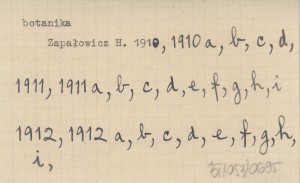 botanika
Zapałowicz H. 1910, 1910 a, b, c, d,
1911, 1911 a, b, c, d, e, f, g, h, i
1912, 1912 a, b, c, d, e, f, g, h,
i,
35/053/0695